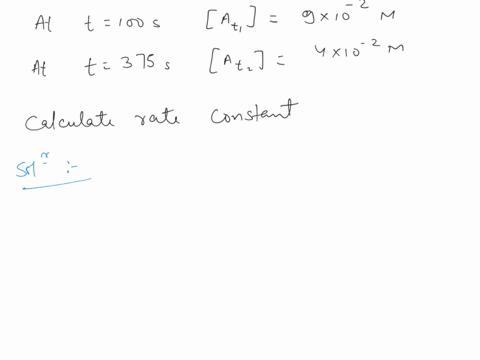 At t = 100 s [A_t₁] = 9×10⁻² M
At t = 375 s [A_t₂] = 4×10⁻² M
Calculate rate constant
Solⁿ :-